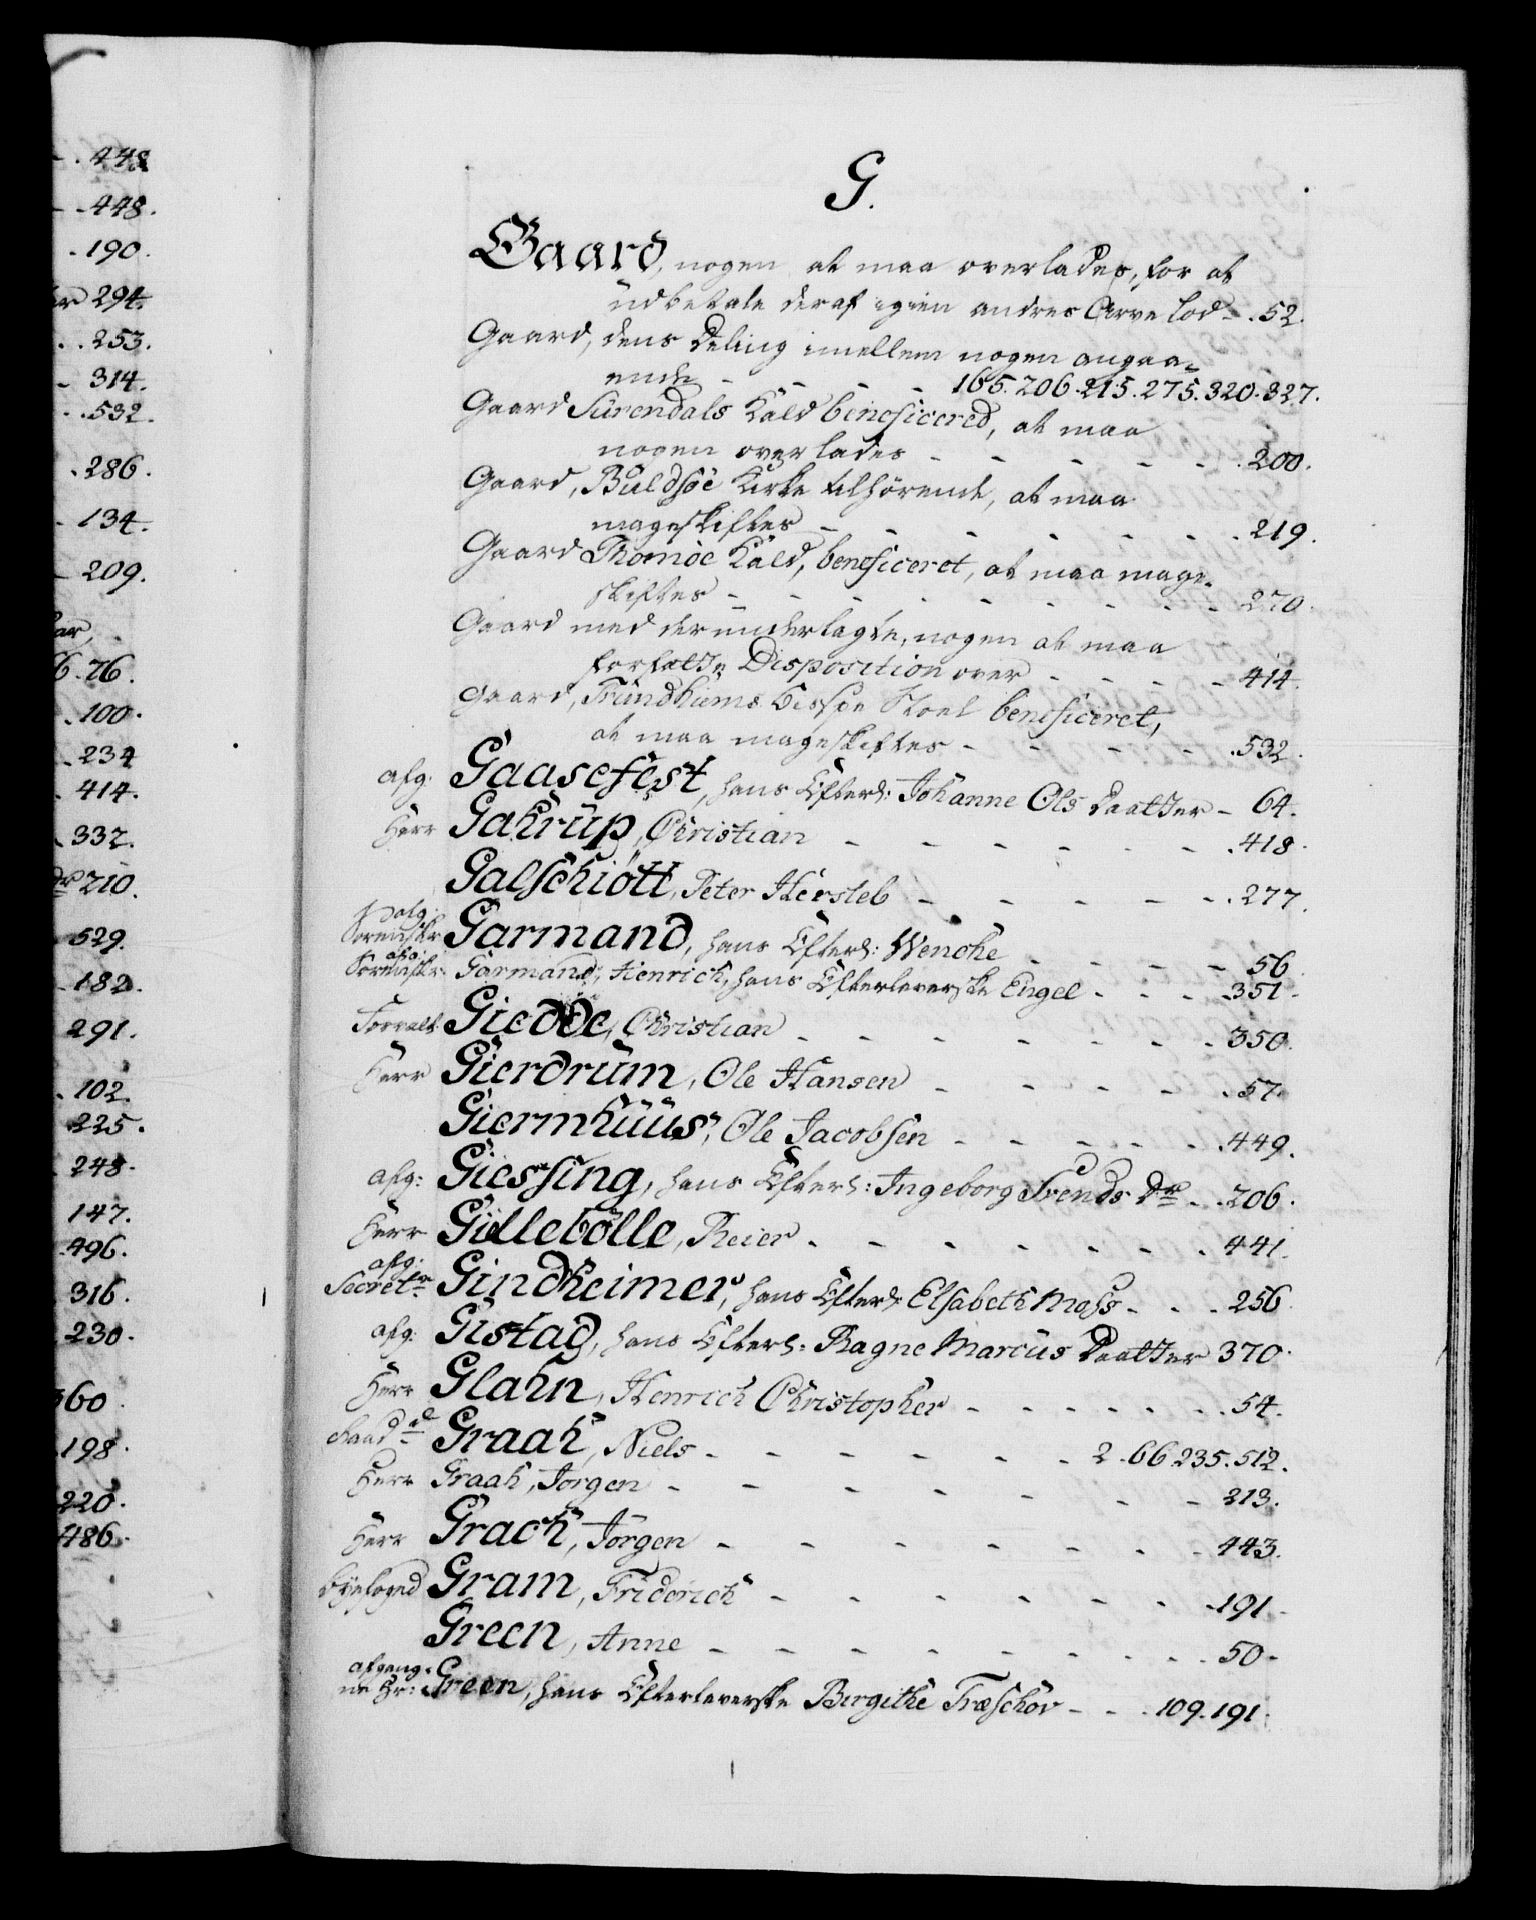 . 448
. 448.
. 190.
294.
. . 253.
314.
. . 532.
. 286.
134.
209.
76.
. 100.
. 234
. 414.
. 332.
210.
529.
182.
291.
. 102.
225.
248.
147.
. 496.
316.
230.
360.
. 198.
220.
486.
G.
Gaard, nogen at maa overlades, for at
udbetale deraf igien andres Arve Lod - . 52.
Gaard, dens Deling imellem nogen angaa-
ende - - - - 165. 206. 215. 275. 320. 327.
Gaard Surendals Kald beneficered, at maa
nogen overlades - - - - - . 200.
Gaard, Buldsöe Kirke tilhörende, at maa
mageskiftes - - - - - - . 219.
Gaard Thomöe Kald, beneficeret, at maa mage-
skiftes - - - - - - - - 270.
Gaard med derunderlagte, nogen at maa
forfatte Disposition over - - - - 414.
Gaard, Trundhiems Bispe Stoel beneficeret,
at maa mageskiftes - - - - . 532.
afg: Gaasefest, hans Efterl: Johanne Ols Daatter - 64.
Herr Gahrup, Christian - - - - - - . 418.
Galschiött, Peter Hersleb - - - - - . 277.
afg: Sorenskr: Garmand, hans Efterl: Wenche - - - - 56
afg: Sorenskr: Garmand, Henrich, hans Efterleverske Engel - - - . 351.
Forvalt: Giedde, Christian - - - - - - - 350.
Herr Gierdrum, Ole Hansen - - - - - . 57.
Giermhuus, Ole Jacobsen - - - - - . 449.
afg: Giessing, hans Efterl: Ingeborg Svends Dr - . 206.
Herr Gillebölle, Reier - - - - - - . 441.
afg: Secretr Gindheimer, hans Efterl: Elsabeth Moss - - . 256
afg: Gistad, hans Efterl: Ragne Marcus Daatter 370.
Herr Glahn, Henrich Christopher - - - - - . 54.
Raadd Graah, Niels - - - - - 2. 66 235. 512.
Herr Graah, Jorgen - - - - - - - 213.
Herr Grach, Jörgen - - - - - - . 443.
Byefoged Gram, Friderich - - - - - - . 191.
Green, Anne - - - - - - - - . 50.
afgang-
ne Hr: Green, hans Efterleverske Birgithe Træschov - - . 109. 191.